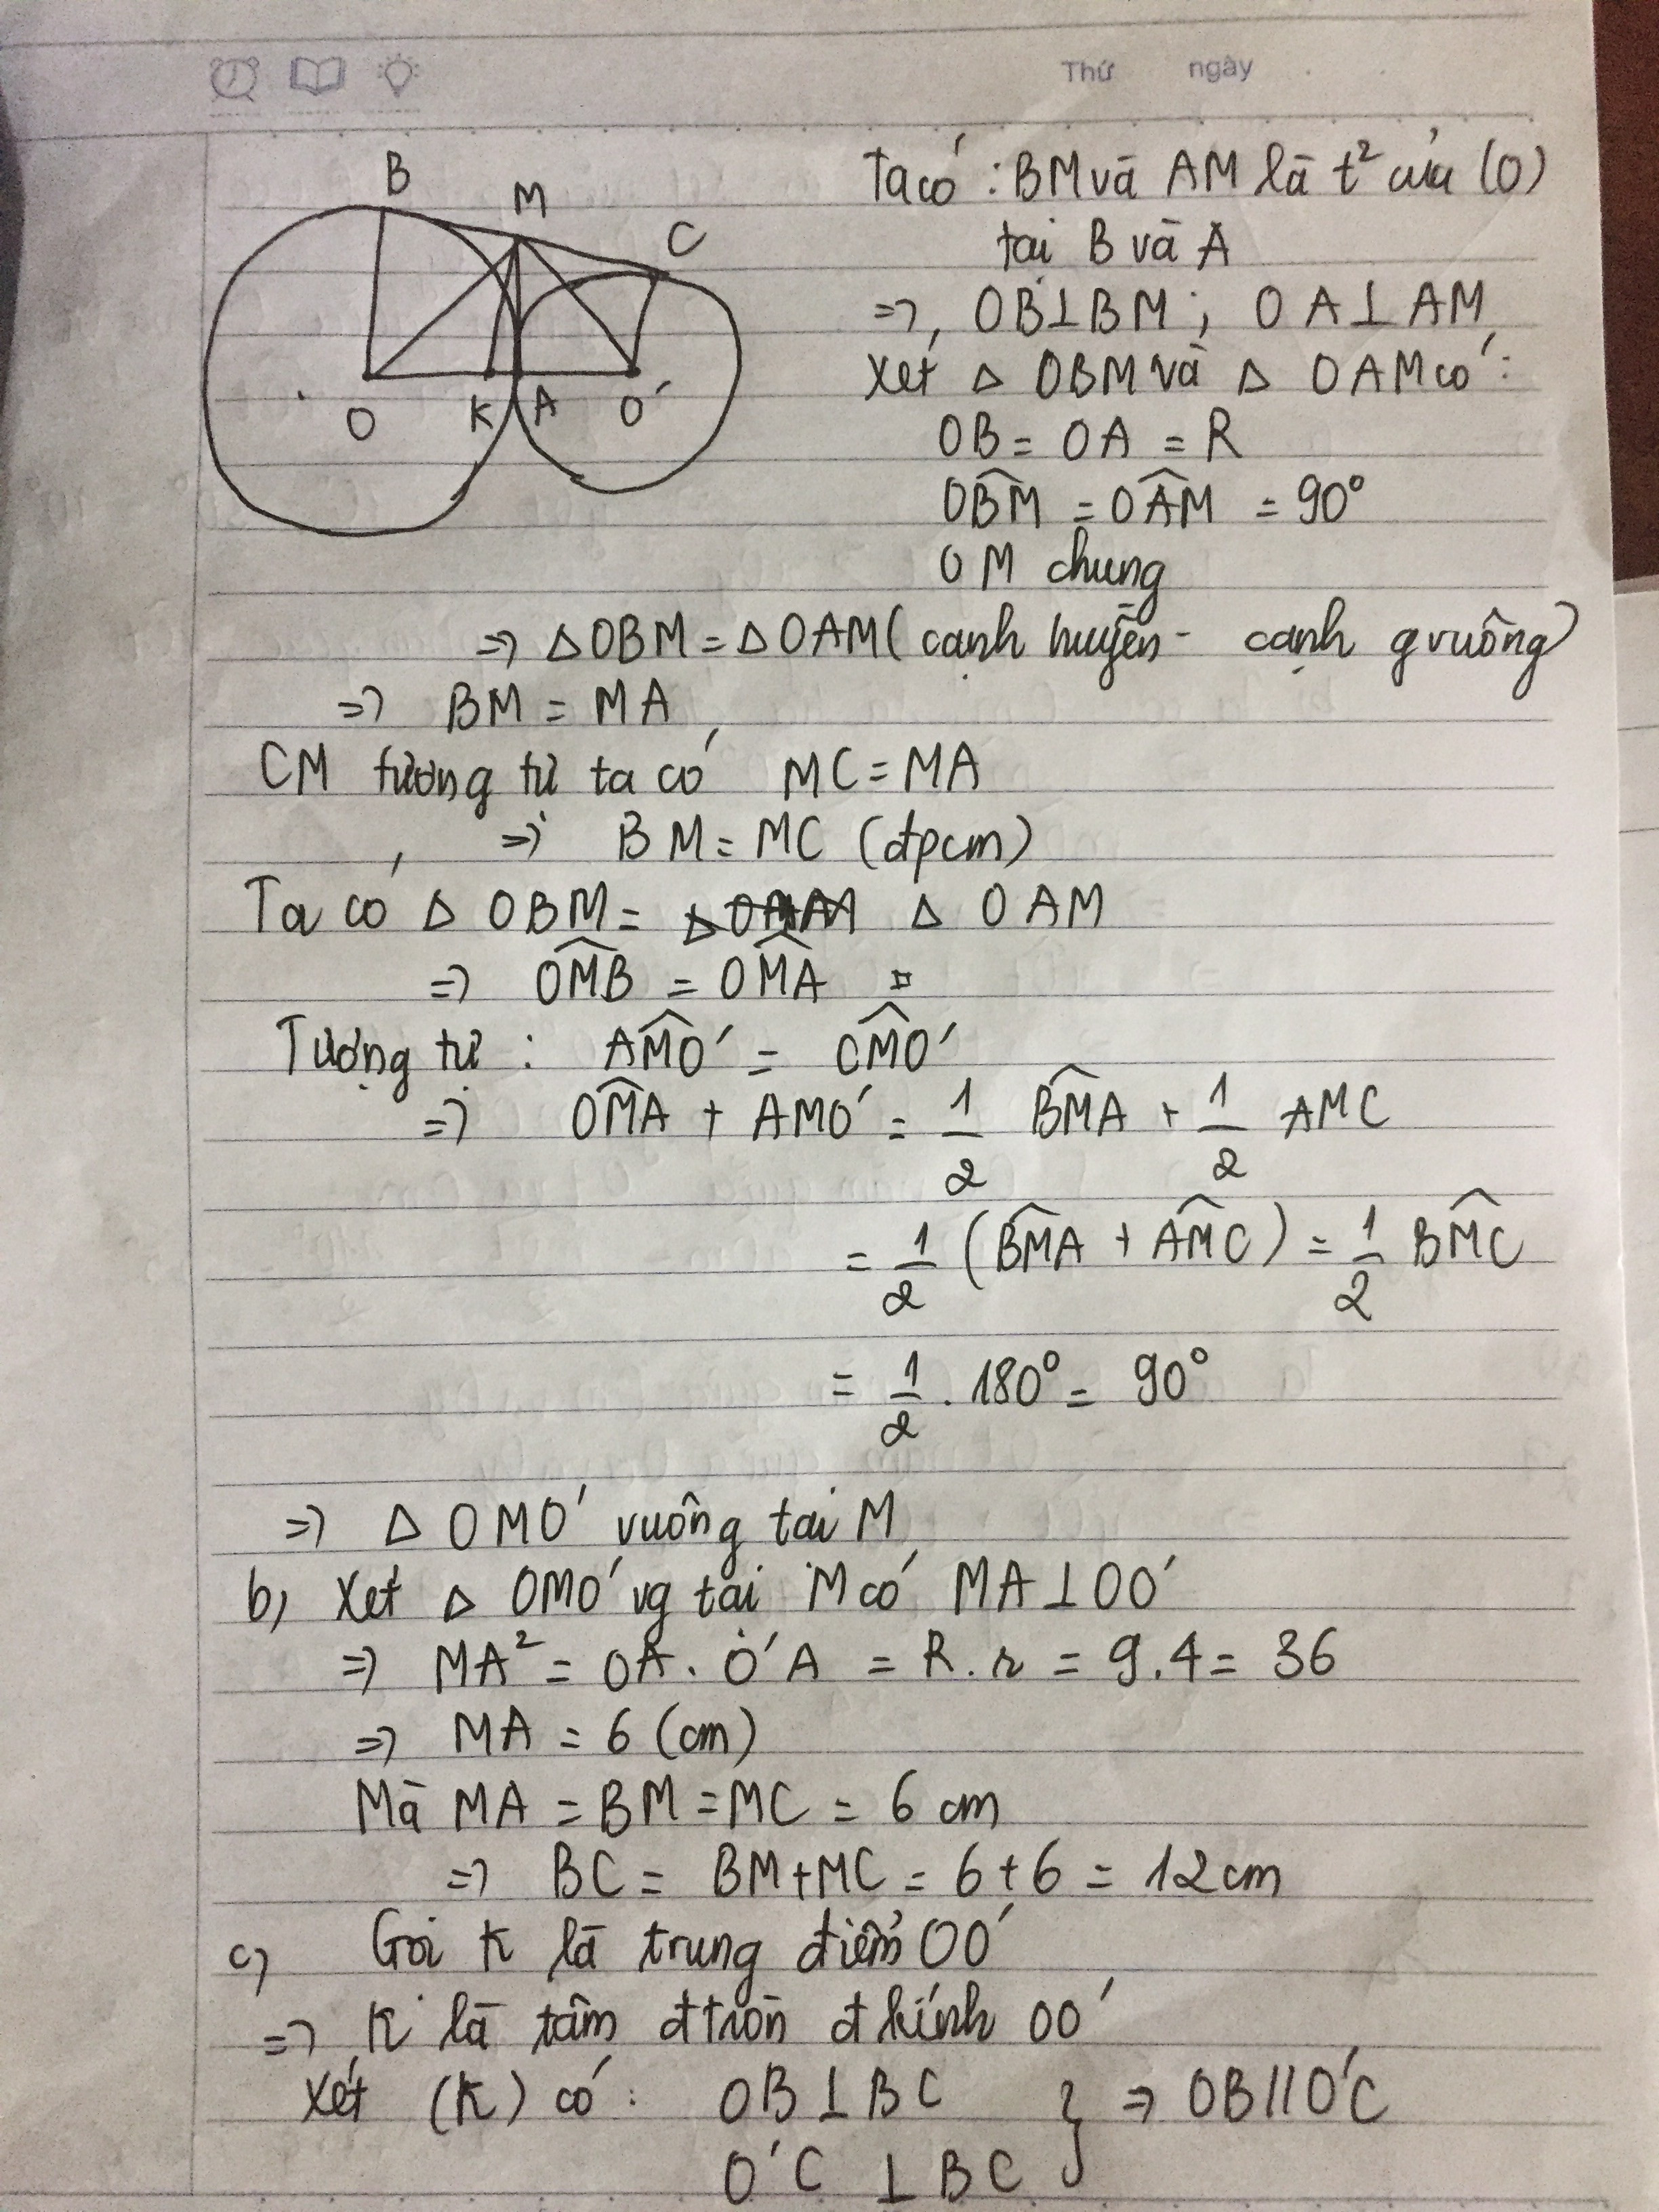 Thứ ngày
B
M
C
O
K
A
O'
Ta có : BM và AM là t² của (O)
tại B và A
=> OB⊥BM ; OA⊥AM
Xét Δ OBM và Δ OAM có :
OB = OA = R
OB̂M = OÂM = 90°
OM chung
=> ΔOBM = ΔOAM ( cạnh huyền - cạnh gvuông)
=> BM = MA
CM tương tự ta có MC = MA
=> BM = MC (đpcm)
Ta có Δ OBM = Δ OAM
=> OM̂B = OM̂A
Tương tự : AM̂O' = CM̂O'
=> OM̂A + AMO' = 1/2 BM̂A + 1/2 AMC
= 1/2 (BM̂A + AM̂C) = 1/2 BM̂C
= 1/2 . 180° = 90°
=> Δ OMO' vuông tại M
b) Xét Δ OMO' vg tại M có MA⊥OO'
=> MA² = OA . O'A = R.r = 9.4 = 36
=> MA = 6 (cm)
Mà MA = BM = MC = 6 cm
=> BC = BM+MC = 6+6 = 12cm
c) Gọi K là trung điểm OO'
=> K là tâm đtròn đkính OO'
Xét (K) có : OB⊥BC } => OB//O'C
O'C ⊥BC